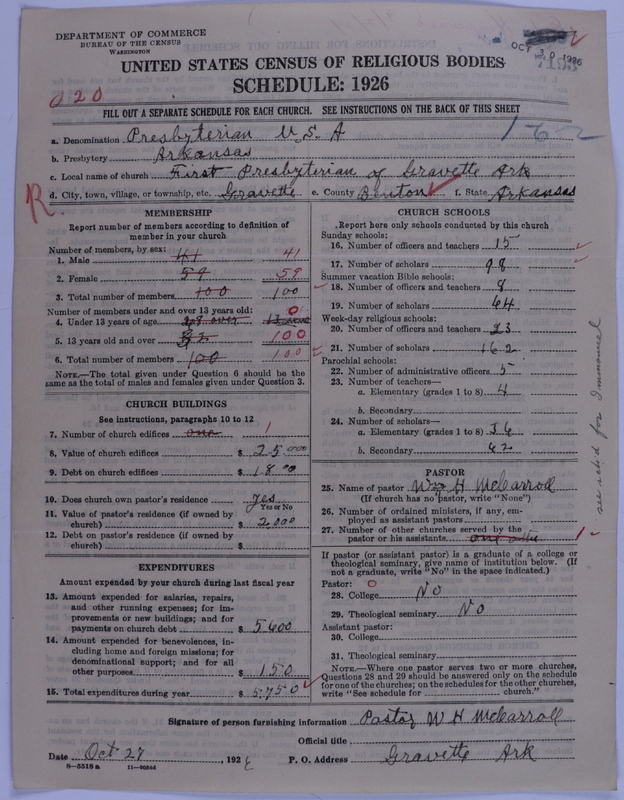 DEPARTMENT OF COMMERCE
BUREAU OF THE CENSUS
WASHINGTON
OCT 30 1926
UNITED STATES CENSUS OF RELIGIOUS BODIES
SCHEDULE: 1926
020
FILL OUT A SEPARATE SCHEDULE FOR EACH CHURCH. SEE INSTRUCTIONS ON THE BACK OF THIS SHEET
a. Denomination Presbyterian U.S.A 162
b. Presbytery Arkansas
c. Local name of church First Presbyterian of Gravette Ark
d. City, town, village, or township, etc. Gravette e. County Benton f. State Arkansas
R.
MEMBERSHIP
Report number of members according to definition of
member in your church
Number of members, by sex:
1. Male 41 41
2. Female 59 59
3. Total number of members 100 100
Number of members under and over 13 years old: 0
4. Under 13 years of age
5. 13 years old and over 100
6. Total number of members 100 100
NOTE.—The total given under Question 6 should be the
same as the total of males and females given under Question 3.
CHURCH BUILDINGS
See instructions, paragraphs 10 to 12
7. Number of church edifices one 1
8. Value of church edifices $ 25000
9. Debt on church edifices $ 1800
10. Does church own pastor's residence yes
Yes or No
11. Value of pastor's residence (if owned by
church) $ 2000
12. Debt on pastor's residence (if owned by
church) $
EXPENDITURES
Amount expended by your church during last fiscal year
13. Amount expended for salaries, repairs,
and other running expenses; for im-
provements or new buildings; and for
payments on church debt $ 5600
14. Amount expended for benevolences, in-
cluding home and foreign missions; for
denominational support; and for all
other purposes $ 150
15. Total expenditures during year $ 5750
CHURCH SCHOOLS
Report here only schools conducted by this church
Sunday schools:
16. Number of officers and teachers 15
17. Number of scholars 98
Summer vacation Bible schools:
18. Number of officers and teachers 8
19. Number of scholars 64
Week-day religious schools:
20. Number of officers and teachers 23
21. Number of scholars 162
Parochial schools:
22. Number of administrative officers 5
23. Number of teachers—
a. Elementary (grades 1 to 8) 4
b. Secondary
24. Number of scholars—
a. Elementary (grades 1 to 8) 36
b. Secondary 62
PASTOR
25. Name of pastor Wm H McCarroll
(If church has no pastor, write "None")
26. Number of ordained ministers, if any, em-
ployed as assistant pastors
27. Number of other churches served by the
pastor or his assistants one 1
If pastor (or assistant pastor) is a graduate of a college or
theological seminary, give name of institution below. (If
not a graduate, write "No" in the space indicated.)
Pastor: 0
28. College No
29. Theological seminary No
Assistant pastor:
30. College
31. Theological seminary
NOTE.—Where one pastor serves two or more churches,
Questions 28 and 29 should be answered only on the schedule
for one of the churches; on the schedules for the other churches,
write "See schedule for church."
see sched for Immanuel
Signature of person furnishing information Pastor W H McCarroll
Official title
Date Oct 27, 1926 P. O. Address Gravette Ark
8—5518 a